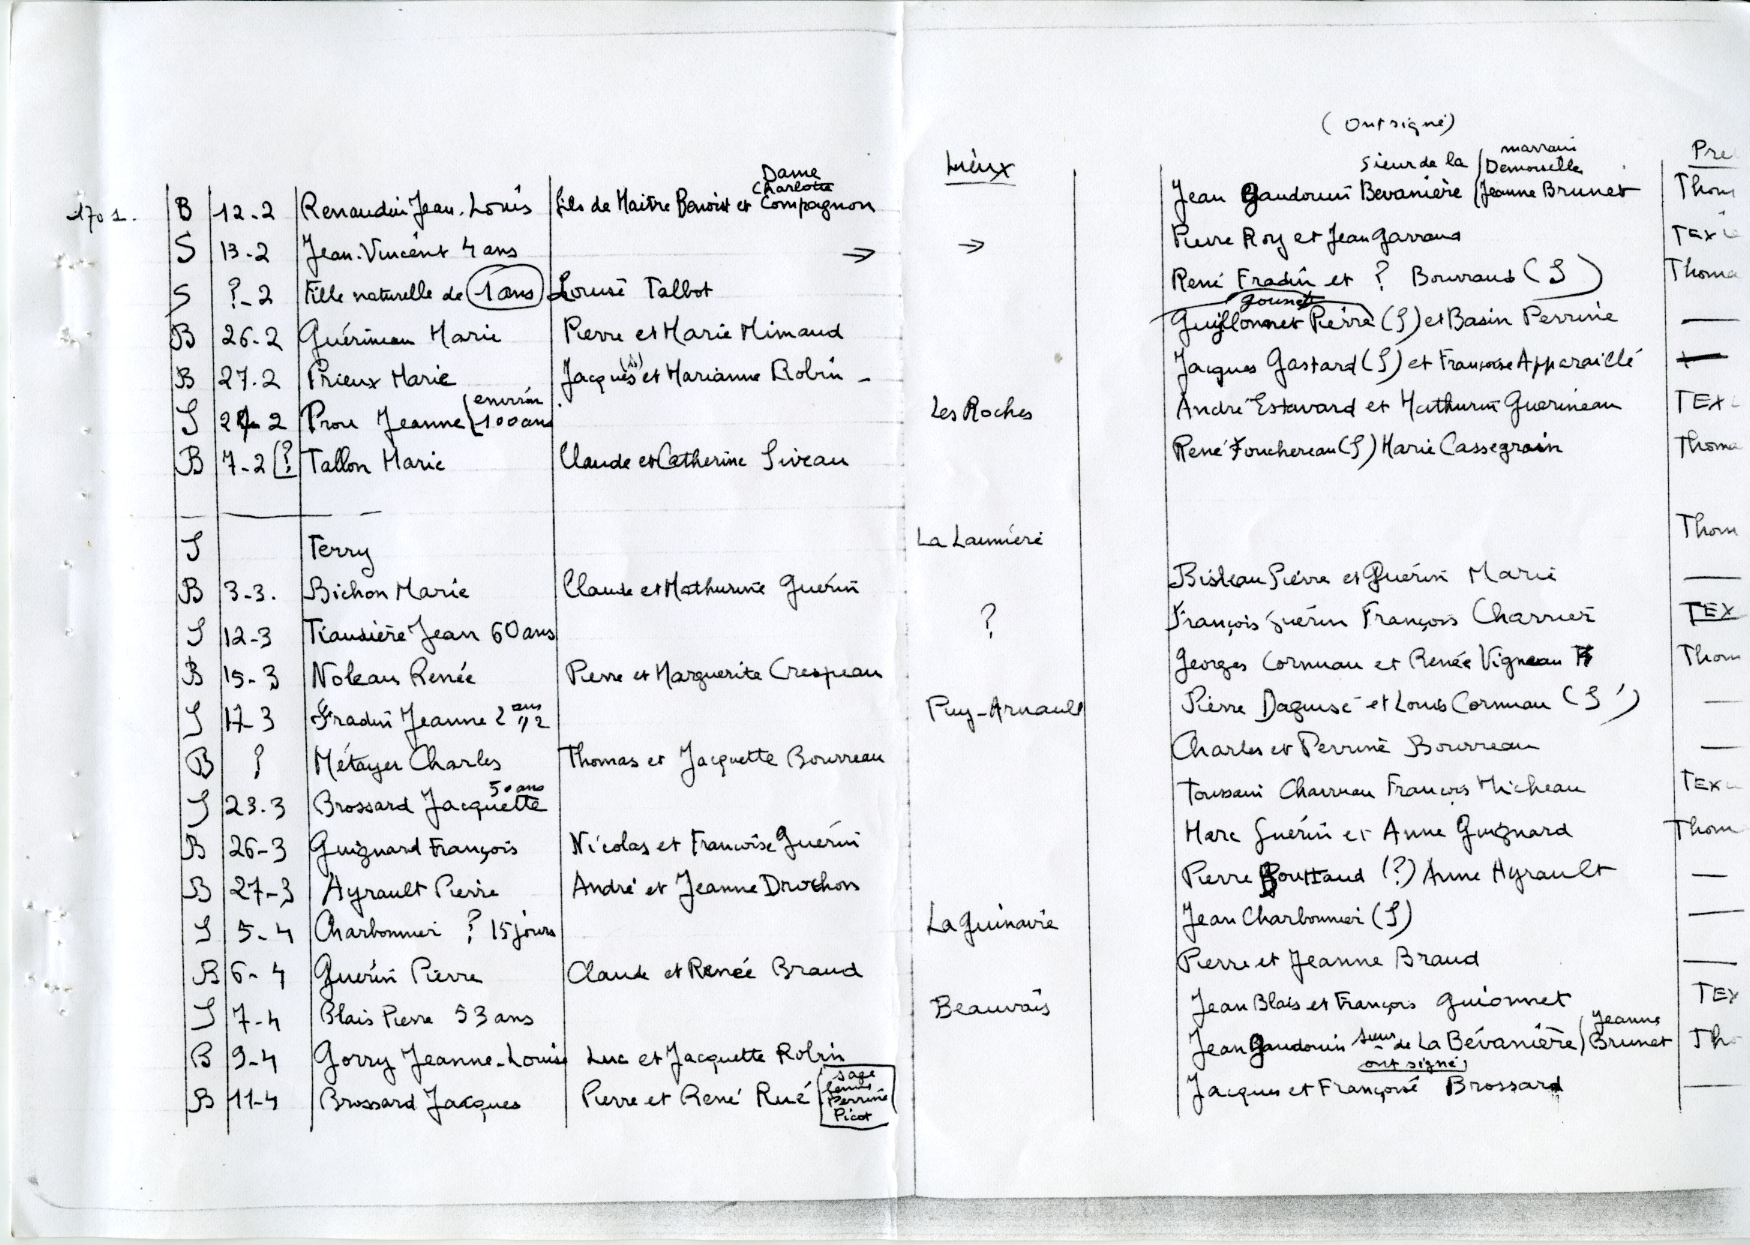 (Ont signé)
Lieux sieur de la marraine Demoiselle Pre
1701. B 12-2 Renaudin Jean-Louis fils de Maître Benoist et Dame Charlotte Compagnon Jean Gaudouin Bevanière Jeanne Brunet Thom
S 13-2 Jean-Vincent 4 ans → → Pierre Roy et Jean Garraud TEXI
S ?-2 Fille naturelle de 1 ans Louise Talbot René Fradin et ? Bouvraud (S) Thoma
B 26-2 Guérineau Marie Pierre et Marie Mimaud Guillonnet Pierre (S) et Basin Perrine —
B 27-2 Prieux Marie Jacques (S) et Marianne Robin - Jacques Gastard (S) et Françoise Apparaillé —
S 2 -2 Prou Jeanne environ 100 ans Les Roches André Estavard et Mathurin Guerineau TEX
B 7-2 [? Tallon Marie Claude et Catherine Siveau René Fouchereau (S) Marie Cassegrain Thoma
S Terry La Laumière Thom
B 3-3. Bichon Marie Claude et Mathurine Guérin Bisleau Pierre et Guérin Marie —
S 12-3 Tiaudière Jean 60 ans ? François Guérin François Charrier TEX
B 15-3 Noleau Renée Pierre et Marguerite Crespeau Georges Cornuau et Renée Vigneau Thom
S 17-3 Fradin Jeanne 2 ans 1/2 Puy-Arnault Pierre Daguisé et Louis Cornuau (S) —
B ? Métayer Charles Thomas et Jacquette Bourreau Charles et Perrine Bourreau —
S 23.3 Brossard Jacquette 50 ans Toussain Charruau François Micheau TEX
B 26-3 Guignard François Nicolas et Françoise Guérin Marc Guérin et Anne Guignard Thom
B 27-3 Ayrault Pierre André et Jeanne Drochon Pierre Bouttaud (?) Anne Ayrault —
S 5-4 Charbonnier ? 15 jours La Guinavie Jean Charbonnier (S) —
B 6-4 Guérin Pierre Claude et Renée Braud Pierre et Jeanne Braud —
S 7-4 Blais Pierre 53 ans Beauvais Jean Blais et François Guionnet TEX
B 9-4 Gorry Jeanne-Louise Luc et Jacquette Robin Jean Gaudouin sieur de La Bévanière Jeanne Brunet ont signé Tho
B 11-4 Brossard Jacques Pierre et René Rué sage femme Perrine Picot Jacques et Françoise Brossard —